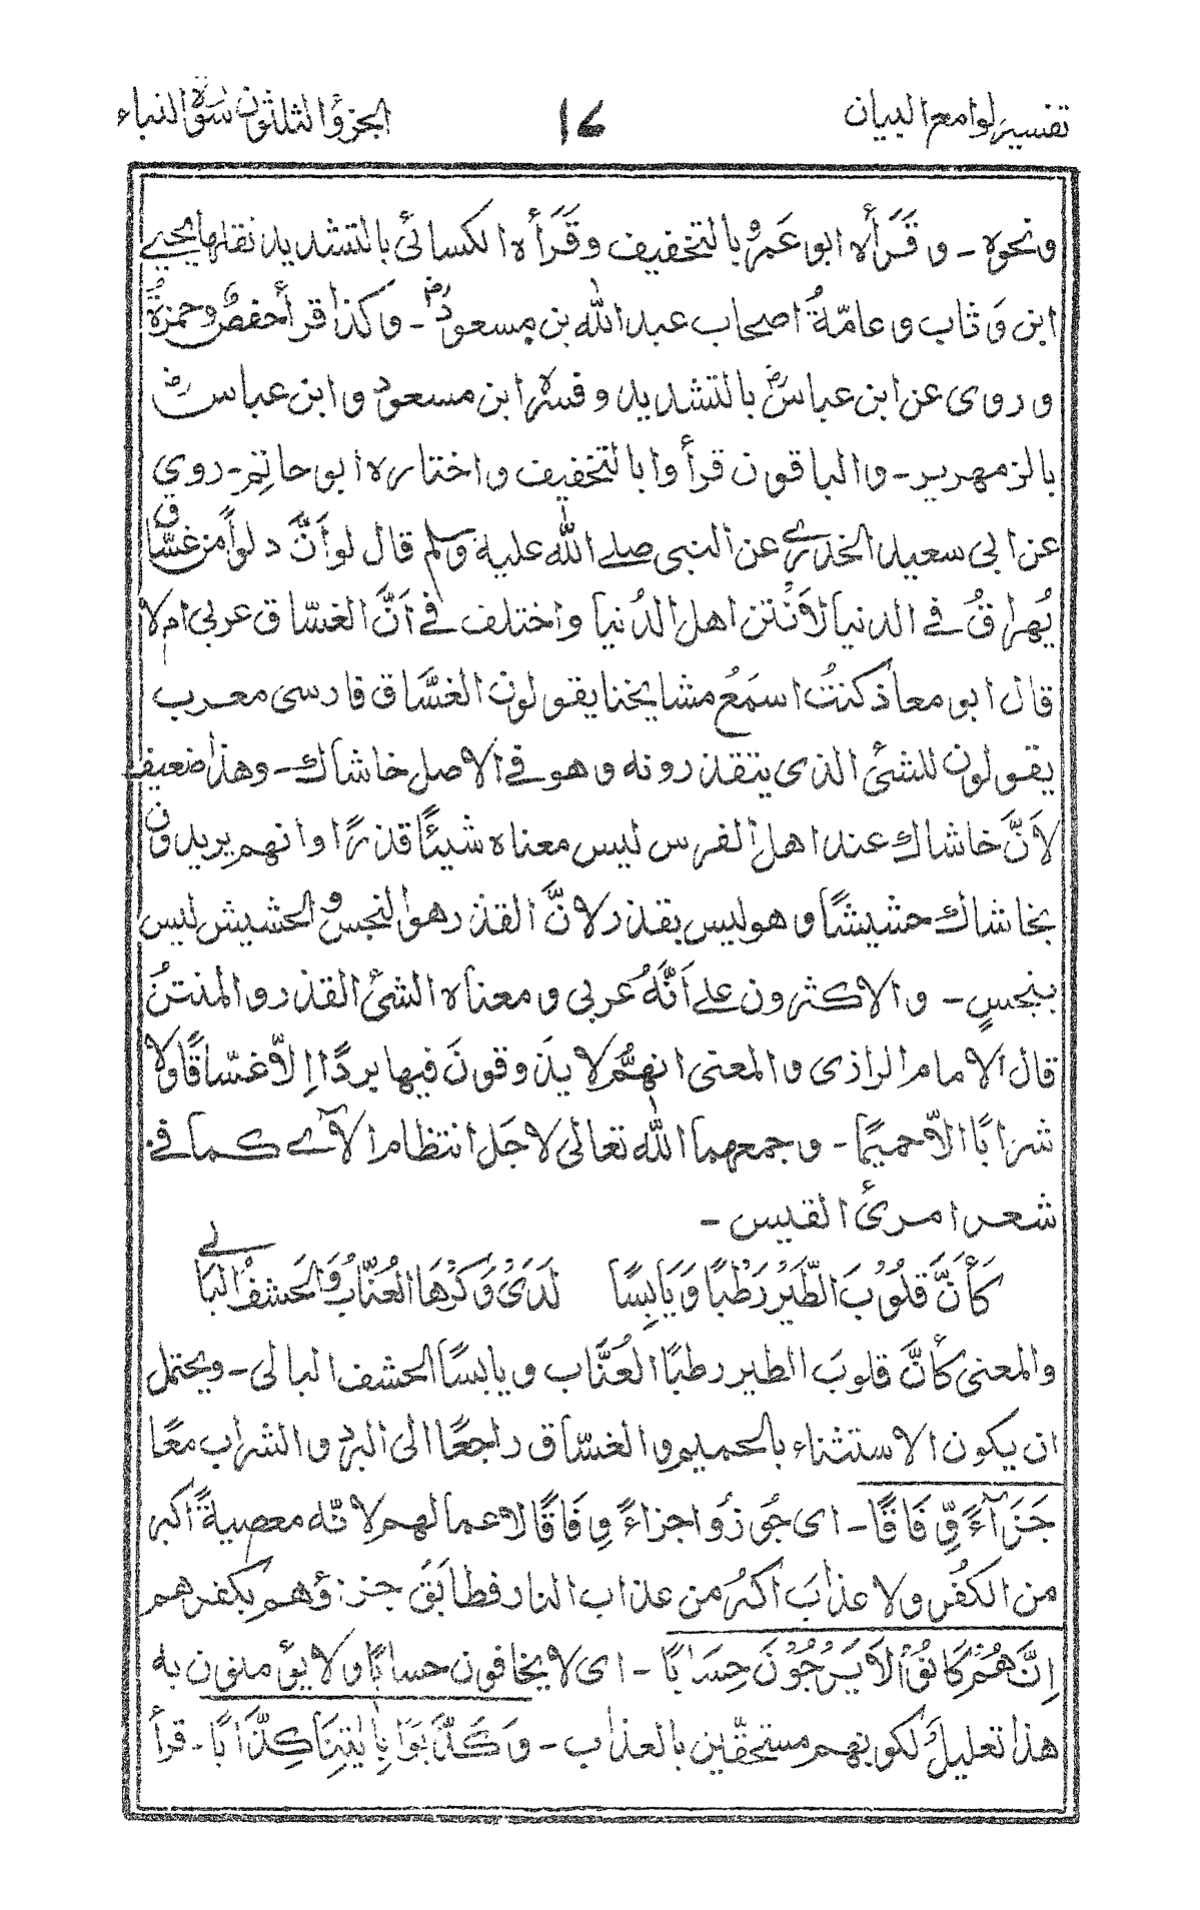 تفسير لوامع البيان ١٧ الجزؤ الثلثون سورة النباء
ونحوه ـ و قَرَأه ابو عَمرو بالتخفيف وقَرَأه الكسائى بالتشديد نقلها يحيى
ابن وَثاب و عامّةُ اصحاب عبد الله بن مسعودؓ ـ وكذا قرأ حفصٌ وحمزةُ
و روى عن ابن عباسؓ بالتشديد وفسره ابن مسعود وابن عباسؓ
بالزمهرير ـ والباقون قرأوا بالتخفيف واختاره ابو حاتِم ـ روى
عن ابى سعيد الخدرى عن النبى صلى الله عليه وسلم قال لو اَنَّ دلواً من غسّاق
يُهراقُ فى الدنيا لاَنتن اهل الدُنيا واختلف فى اَنَّ الغسّاق عربى ام لا
قال ابو معاذ كنتُ اسمَعُ مشايخنا يقولون الغسَّاق فارسى معرب
يقولون للشئ الذى يتقذرونه وهو فى الاصل خاشاك ـ وهذا ضعيف
لاَنَّ خاشاك عند اهل الفرس ليس معناه شيئًا قذرًا وانهم يريدون
بخاشاك حشيشًا وهو ليس بقذر لانَّ القذر هو النجس والحشيش ليس
بنجسٍ ـ والاكثرون على اَنَّهُ عربى ومعناه الشئ القذر والمنتنُ
قال الامام الرازى والمعنى انهُم لا يذوقونَ فيها بردًا اِلاّ غسّاقًا ولا
شرَابًا الاّ حميمًا ـ وجمعهما الله تعالى لاجَل انتظام الآى كما فى
شعر امرئ القيس ـ
كَأَنَّ قلُوْبَ الطَّيْرِ رَطْبًا وَيَابِسًا لَدَىْ وَكْرِهَا العُنَّابُ وَالحَشفُ البَالى
والمعنى كأنَّ قلوبَ الطير رطبًا العُنَّاب ويابسًا الحشف البالى ـ ويحتمل
ان يكون الاستثناء بالحميم والغسّاق راجعًا الى البرد والشراب معًا
جَزَآءً وِّفَاقًا ـ اى جُوزُوا جزاءً وِفَاقًا لاعمالهم لانّه معصية اكبر
من الكفر ولا عذابَ اكبرُ من عذاب النار فطابَقَ جزؤهم بكفرهم
اِنَّهُمْ كَانُوْا لاَ يَرْجُوْنَ حِسَابًا ـ اى لا يخافون حسابًا ولا يؤمنون به
هذا تعليلٌ لكونهم مستحقّين بالعذاب ـ وَكَذَّبُوْا بِاٰيٰتِنَا كِذَّابًا ـ قرأ